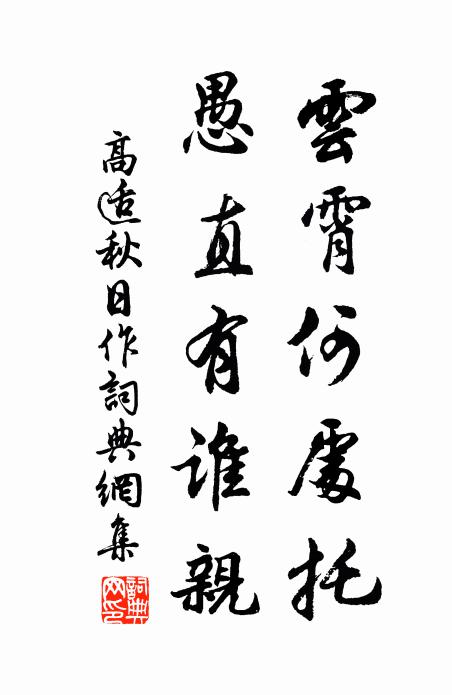 雲霄何處托
愚直有誰親
高适秋日作詞典網集
詞典網印